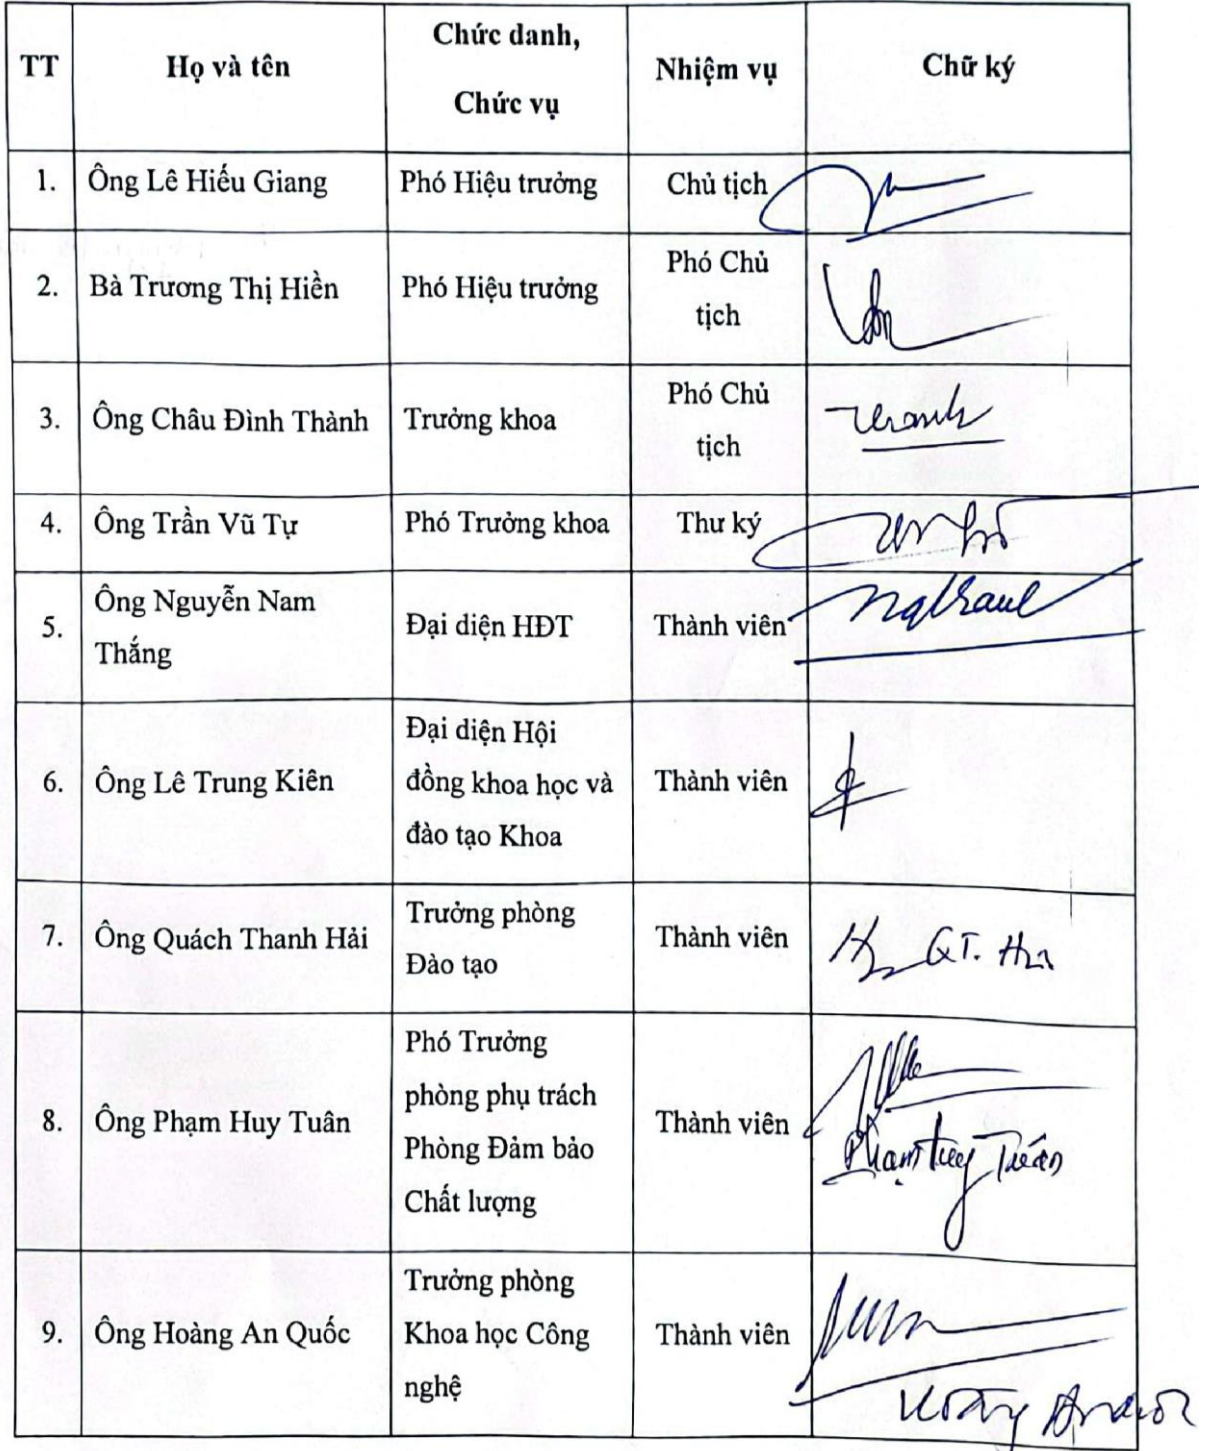 TT Họ và tên Chức danh, Chức vụ Nhiệm vụ Chữ ký
1. Ông Lê Hiếu Giang Phó Hiệu trưởng Chủ tịch
2. Bà Trương Thị Hiền Phó Hiệu trưởng Phó Chủ tịch
3. Ông Châu Đình Thành Trưởng khoa Phó Chủ tịch
4. Ông Trần Vũ Tự Phó Trưởng khoa Thư ký
5. Ông Nguyễn Nam Thắng Đại diện HĐT Thành viên
6. Ông Lê Trung Kiên Đại diện Hội đồng khoa học và đào tạo Khoa Thành viên
7. Ông Quách Thanh Hải Trưởng phòng Đào tạo Thành viên
8. Ông Phạm Huy Tuân Phó Trưởng phòng phụ trách Phòng Đảm bảo Chất lượng Thành viên
9. Ông Hoàng An Quốc Trưởng phòng Khoa học Công nghệ Thành viên